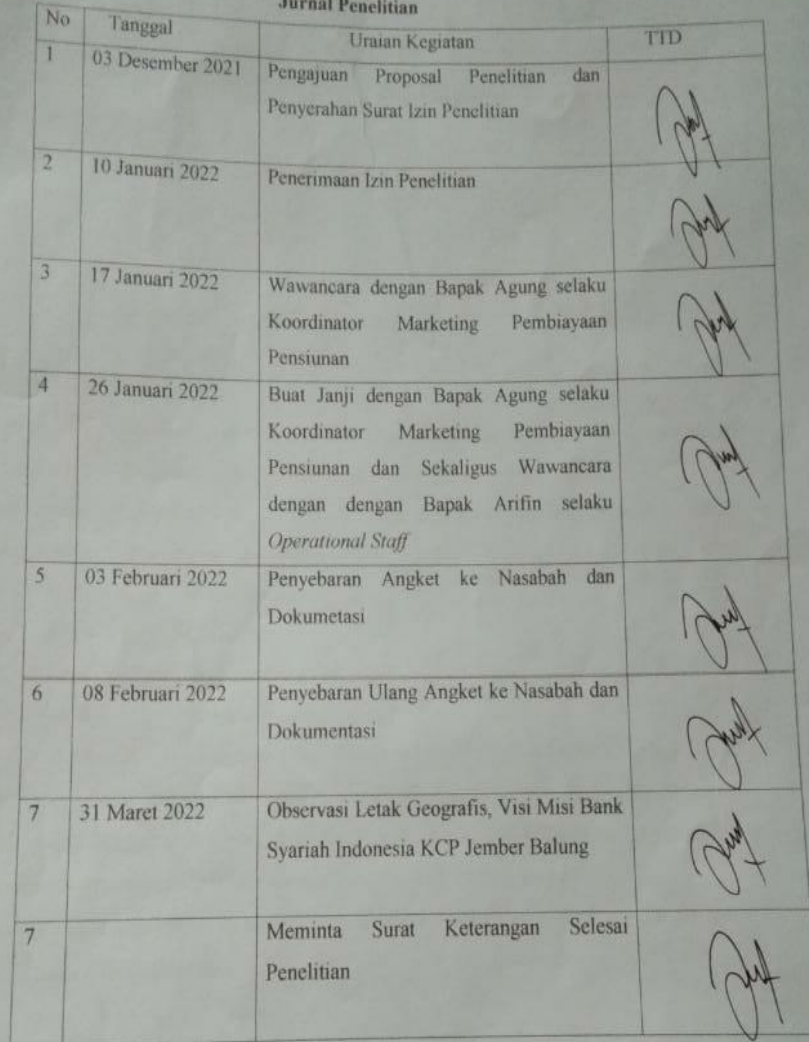 Jurnal Penelitian
No Tanggal Uraian Kegiatan TTD
1 03 Desember 2021 Pengajuan Proposal Penelitian dan
Penyerahan Surat Izin Penelitian
2 10 Januari 2022 Penerimaan Izin Penelitian
3 17 Januari 2022 Wawancara dengan Bapak Agung selaku
Koordinator Marketing Pembiayaan
Pensiunan
4 26 Januari 2022 Buat Janji dengan Bapak Agung selaku
Koordinator Marketing Pembiayaan
Pensiunan dan Sekaligus Wawancara
dengan dengan Bapak Arifin selaku
Operational Staff
5 03 Februari 2022 Penyebaran Angket ke Nasabah dan
Dokumetasi
6 08 Februari 2022 Penyebaran Ulang Angket ke Nasabah dan
Dokumentasi
7 31 Maret 2022 Observasi Letak Geografis, Visi Misi Bank
Syariah Indonesia KCP Jember Balung
7 Meminta Surat Keterangan Selesai
Penelitian